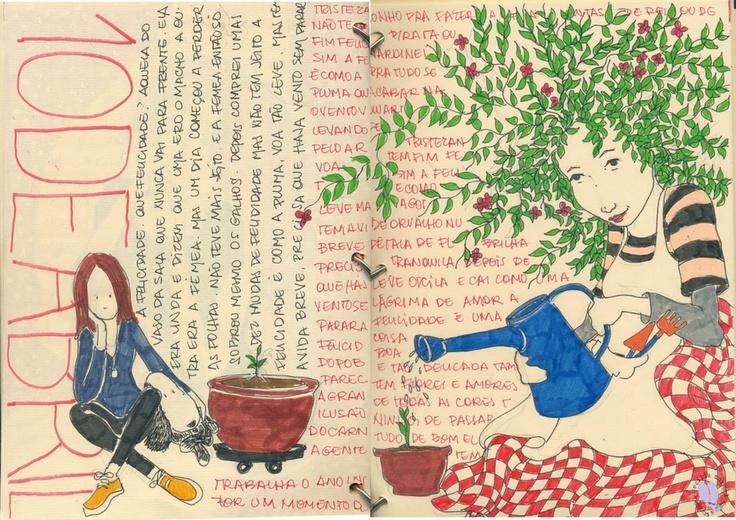 10 DE ABRIL
A FELICIDADE. QUE FELICIDADE? AQUELA DO
VASO DA SALA QUE NUNCA VAI PARA FRENTE. ELA
ERA LINDA E DIZEM QUE UMA ERA O MACHO A OU-
TRA ERA A FÊMEA. MAS UM DIA COMEÇOU A PERDER
AS FOLHAS. NÃO TEVE MAIS JEITO. E A FÊMEA ENTÃO SÓ
SOBROU MESMO OS GALHOS. DEPOIS COMPREI UMAS
DEZ MUDAS DE FELICIDADE MAS NÃO TEM JEITO A
FELICIDADE É COMO A PLUMA, VOA TÃO LEVE, MAS TEM
A VIDA BREVE, PRECISA QUE HAJA VENTO SEM PARAR
TRISTEZA
NÃO TE
FIM FELIC
SIM A FE
É COMO A
PLUMA QU
O VENTO V
LEVANDO
PELO AR
VOA
LEVE MA
TEM A VI
BREVE
PRECIS
QUE HA
VENTO SE
PARAR A
FELICID
DO POB
PAREC
A GRAN
ILUSÃO
DO CARN
A GENTE
TRABALHA O ANO IN
POR UM MOMENTO D
ONHO PRA FAZER A
DE REI OU DE
PIRATA OU
JARDINEI
PRA TUDO SE
ACABAR NA
QUART
TRISTEZA N
TEM FIM FE
SIM A FELI
É COMO A
GOT
DE ORVALHO NU
PÉTALA DE FL BRILHA
TRANQUILA DEPOIS DE
LEVE OSCILA E CAI COMO UMA
LÁGRIMA DE AMOR A
FELICIDADE É UMA
COISA
BOA
E TÃO DELICADA TAM
TEM FLORES E AMORES
DE TODAS AS CORES T
NINHOS DE PASSAR
TUDO DE BOM EL
TEM